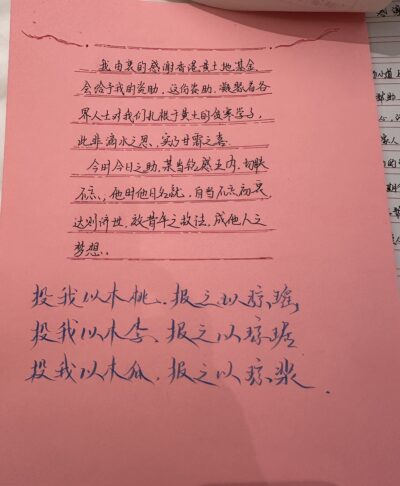 我由衷的感谢香港黄土地基金
会给予我的资助，这份资助，凝聚着各
界人士对我们扎根于黄土的傲寒学子，
此非滴水之恩，实乃甘霖之喜
今时今日之助，某当铭感五内，切肤
不忘，他时他日若能，自当不忘初衷，
达则济世，效昔年之故法，成他人之
梦想．
投我以木桃，报之以琼瑶，
投我以木李，报之以琼玖
投我以木瓜，报之以琼